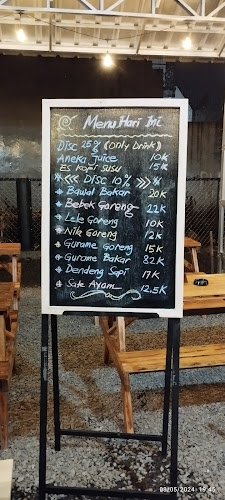 Menu Hari Ini
Disc 25% (Only Drink)
Aneka Juice 10K
Es Kopi Susu 15K
* <<< Disc 10% >>>
* Bawal Bakar 20K
* Bebek Goreng 22K
* Lele Goreng 10K
* Nila Goreng 12K
* Gurame Goreng 15K
* Gurame Bakar 32K
* Dendeng Sapi 17K
* Sate Ayam 12.5K
08/05/2024 19:45